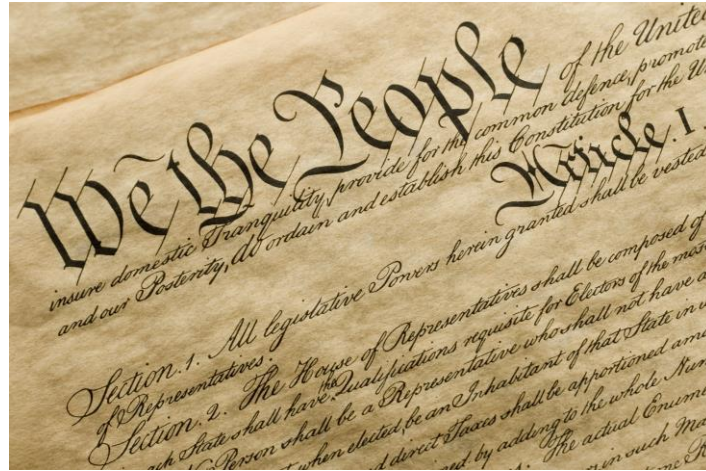 We the People of the United
insure domestic Tranquility, provide for the common defence, promote
and our Posterity, do ordain and establish this Constitution for the Un
Article. I.
Section. 1. All legislative Powers herein granted shall be vested
of Representatives.
Section. 2. The House of Representatives shall be composed of
ach State shall have the Qualifications requisite for Electors of the most
No Person shall be a Representative who shall not have a
not when elected, be an Inhabitant of that State in w
and direct Taxes shall be apportioned amo
ned by adding to the whole Num
s. The actual Enume
in such Ma